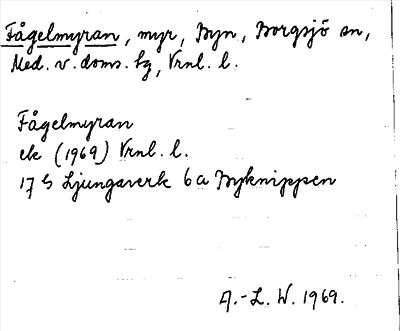 Fågelmyran, myr, Byn, Borgsjö sn,
Med. v. doms. hg, Vrnl. l.
Fågelmyran
ek (1969) Vrnl. l.
17 G Ljungaverk 6a Byknippen
A.-L. W. 1969.